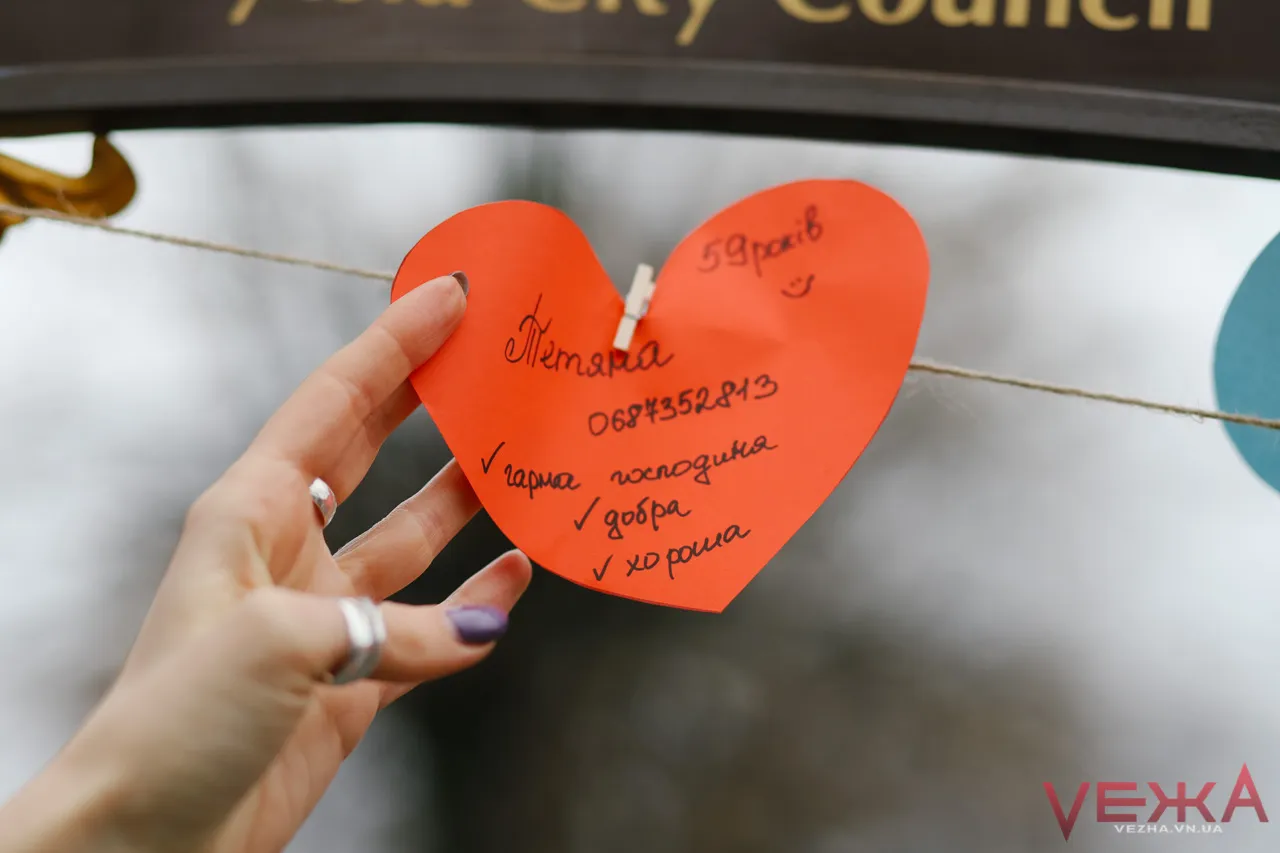 City Council
59 років
Тетяна
0687352813
✓ гарна господиня
✓ добра
✓ хороша
ВЕЖА
VEZHA.VN.UA